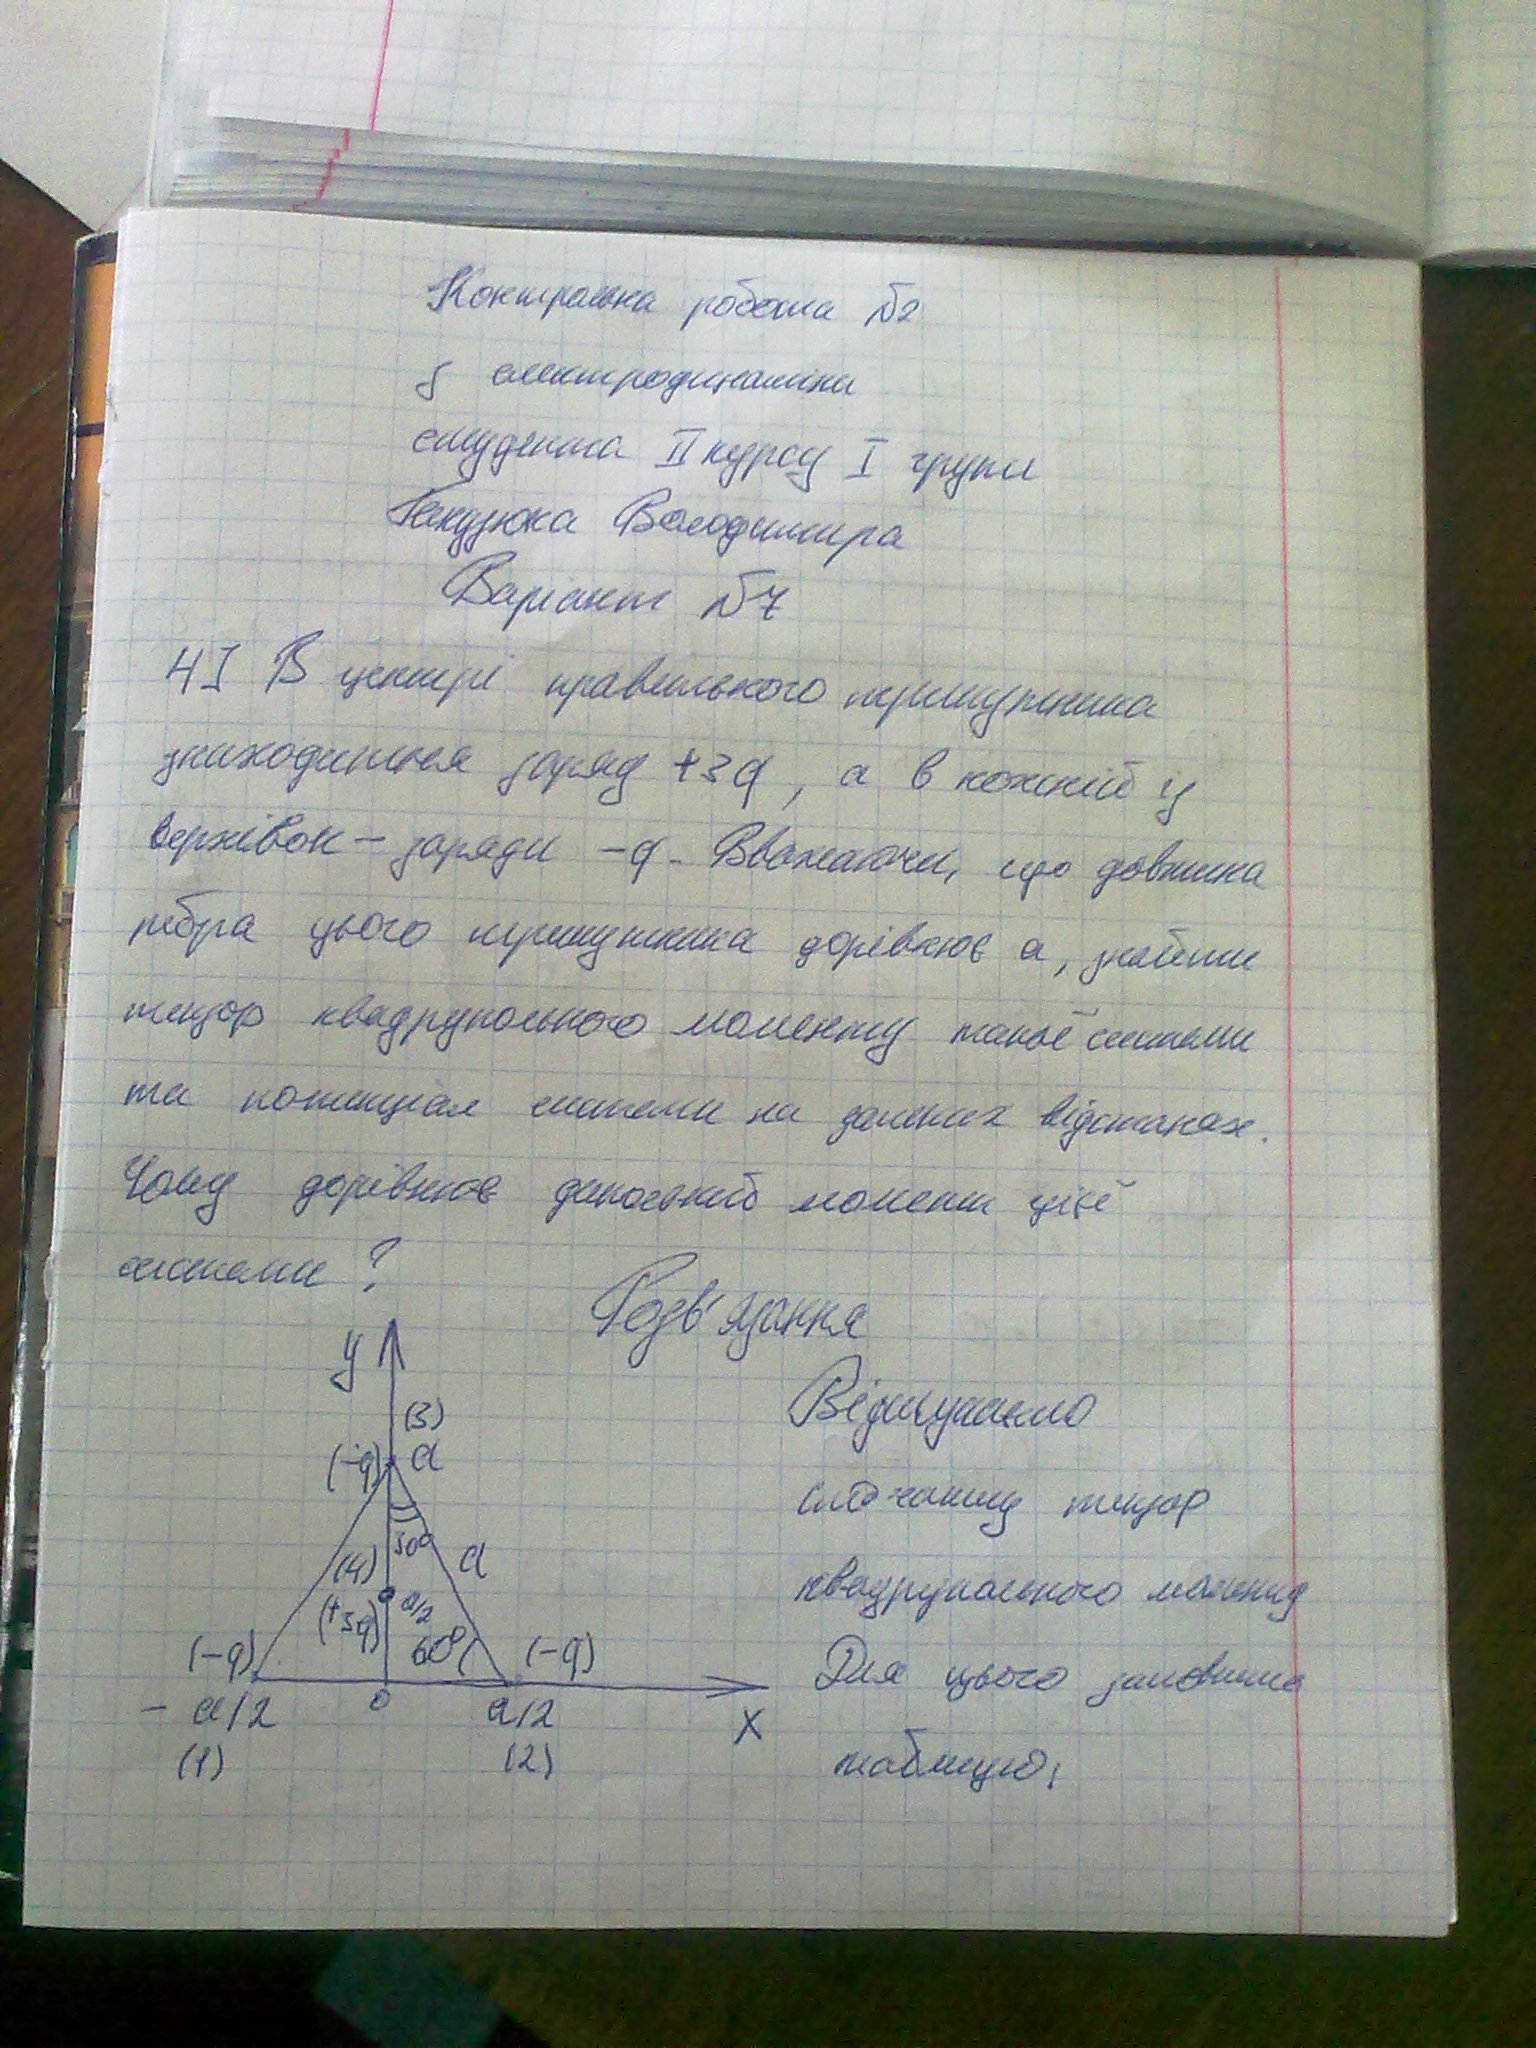 Контрольна робота №2
з електродинаміки
студента II курсу I групи
Володимира
Варіант №7
4] В центрі правильного трикутника
знаходиться заряд +3q, а в кожній із
вершвок – заряди -q. Вважаючи, що довжина
ребра цього трикутника дорівнює a, знайти
тензор квадрупольного моменту такої системи
та потенціал системи на далеких відстанях.
Чому дорівнює дипольний момент цієї
системи?
Розв'язання
y
(3)
(-q) a
30°
(4)
a
(+3q)
a/2
60°
(-q)
(-q)
- a/2
0
a/2
X
(1)
(2)
Відшукаємо
спочатку тензор
квадрупольного моменту
Для цього заповнимо
таблицю: